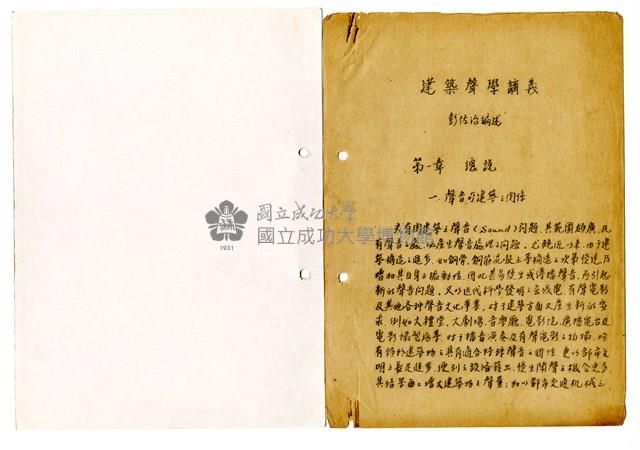 建築聲學講義
彭佐治編述
第一章 總說
一.聲音與建築之關係
夫有関建築之聲音(Sound)問題,其範圍頗廣,凡
有聲音之處,必產生聲音處理之問題,尤輓近以來,由于建
築構造之進步,如鋼骨,鋼筋混凝土等構造之次第發達,乃
增加其自身之振動性,因此甚易發生或傳播聲音,而引起
新的聲音問題,又以近代科學發明之無線電,有聲電影
及其他各种聲音文化事業,對于建築方面又產生新的需
求,例如大禮堂,大劇場,音樂廳,電影院,廣播電台及
電影攝製場等,对于播音演奏及有聲電影之拍攝,均
有賴於建築物之具有適合
聲音之個性,更以都市文
明之長足進步,便利之設備
出,發生鬧聲之機會更多,
其結果
增大建築物之聲量;加以都市交通机械之
國立成功大學
國立成功大學博物館
1931